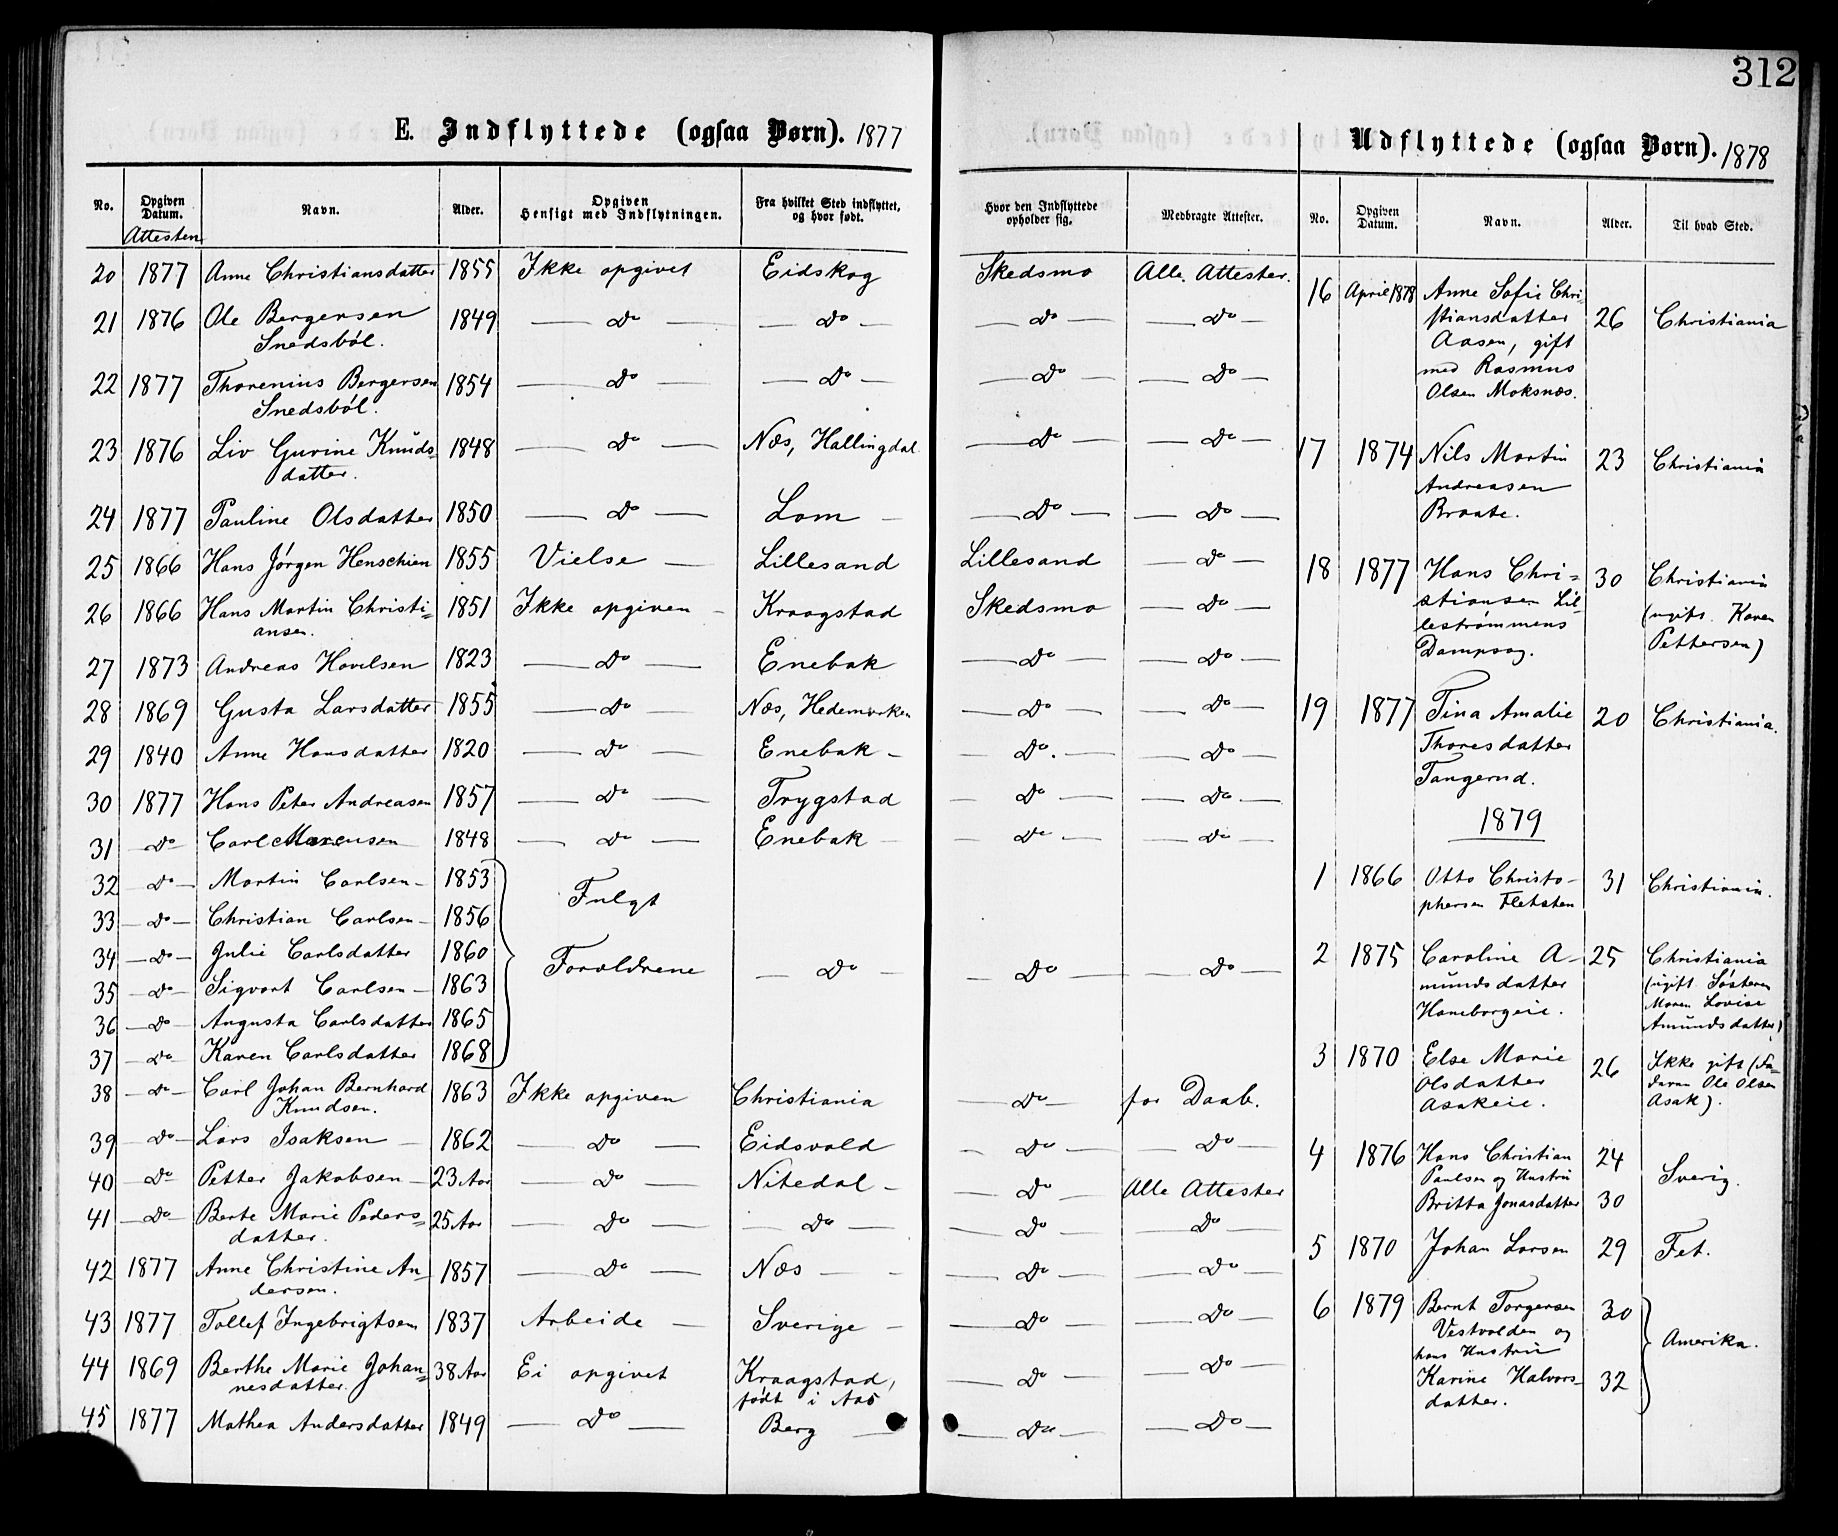 312
E. Indflyttede (ogsaa Børn). 1877
No. | Opgiven Datum. Attesten | Navn. | Alder. | Opgiven Hensigt med Indflytningen. | Fra hvilket Sted indflyttet, og hvor født. | Hvor den Indflyttede opholder sig. | Medbragte Attester.
20 | 1877 | Anne Christiansdatter | 1855 | Ikke opgivet | Eidskog | Skedsmo | Alle Attester.
21 | 1876 | Ole Bergersen | 1849 | — Do — | — Do — | — Do — | — Do —
Snedsböl.
22 | 1877 | Thorenius Bergersen | 1854 | — Do — | — Do — | — Do — | — Do —
Snedsböl.
23 | 1876 | Liv Gurine Knuds- | 1848 | — Do — | Næs, Hallingdal | — Do — | — Do —
datter.
24 | 1877 | Pauline Olsdatter | 1850 | — Do — | Lom | — Do — | — Do —
25 | 1866 | Hans Jørgen Henschien | 1855 | Vielse — | Lillesand | Lillesand | — Do —
26 | 1866 | Hans Martin Christi- | 1851 | Ikke opgiven | Kraagstad | Skedsmo | — Do —
ansen.
27 | 1873 | Andreas Hovelsen | 1823 | — Do — | Enebak | — Do — | — Do —
28 | 1869 | Gusta Larsdatter | 1855 | — Do — | Næs, Hedemarken | — Do — | — Do —
29 | 1840 | Anne Hansdatter | 1820 | — Do — | Enebak | — Do. — | — Do —
30 | 1877 | Hans Peter Andreasen | 1857 | — Do — | Trygstad | — Do — | — Do —
31 | — Do — | Carl Marensen | 1848 | — Do — | Enebak | — Do — | — Do —
32 | — Do — | Martin Carlsen | 1853 | Fulgt
33 | — Do — | Christian Carlsen | 1856
34 | — Do — | Julie Carlsdatter | 1860 | Forældrene | — Do — | — Do — | — Do —
35 | — Do — | Sigvart Carlsen | 1863
36 | — Do — | Augusta Carlsdatter | 1865
37 | — Do — | Karen Carlsdatter | 1868
38 | — Do — | Carl Johan Bernhard | 1863 | Ikke opgiven | Christiania | — Do — | for Daab.
Knudsen.
39 | — Do — | Lars Isaksen | 1862 | — Do — | Eidsvold | — Do — | — Do —
40 | — Do — | Petter Jakobsen | 23 Aar | — Do — | Nitedal | — Do — | Alle Attester
41 | — Do — | Berte Marie Peders- | 25 Aar | — Do — | — Do — | — Do — | Do —
datter.
42 | 1877 | Anne Christine An- | 1857 | — Do — | Næs — | — Do — | — Do —
dersen.
43 | 1877 | Tollef Ingebrigtsen | 1837 | Arbeide — | Sverige — | — Do — | — Do —
44 | 1869 | Berthe Marie Johan- | 38 Aar | Ei opgivet | Kraagstad, | — Do — | — Do —
nesdatter. | født i Aas
45 | 1877 | Mathea Andersdatter | 1849 | — Do — | Berg | — Do — | — Do —
Udflyttede (ogsaa Børn). 1878
No. | Opgiven Datum. | Navn. | Alder. | Til hvad Sted.
16 | April 1878 | Anne Sofie Chri-
stiansdatter | 26 | Christiania
Aasen, gift
med Rasmus
Olsen Moksnæs.
17 | 1874 | Nils Martin | 23 | Christiania
Andreasen
Braate.
18 | 1877 | Hans Chri- | 30 | Christiania
stiansen Lil- | (ugift. Karen
lestrømmens | Pettersen)
Dampsag.
19 | 1877 | Tina Amalie | 20 | Christiania.
Thoresdatter
Tangerud.
1879
1 | 1866 | Otto Christo- | 31 | Christiania.
phersen
2 | 1875 | Caroline A- | 25 | Christiania
mundsdatter | (ugift. Søsteren
Haneborgeie. | Maren Lovise
Amundsdatter)
3 | 1870 | Else Marie | 26 | Ikke gift (Fa-
Olsdatter | deren Ole Olsen
Asakeie. | Asak).
4 | 1876 | Hans Christian | 24
Paulsen og Hustru | Sverig.
Britta Jonasdatter | 30
5 | 1870 | Johan Larsen | 29 | Fet.
6 | 1879 | Bernt Torgersen | 30
Vestvolden og
hans Hustru | Amerika.
Karine Halvors- | 32
datter.